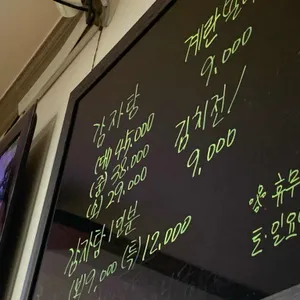 감자탕
(대) 45,000
(중) 38,000
(소) 29,000
감자탕 1인분
(보) 9,000 (특) 12,000
계란말이
9,000
김치전/
9,000
휴무
토.일요